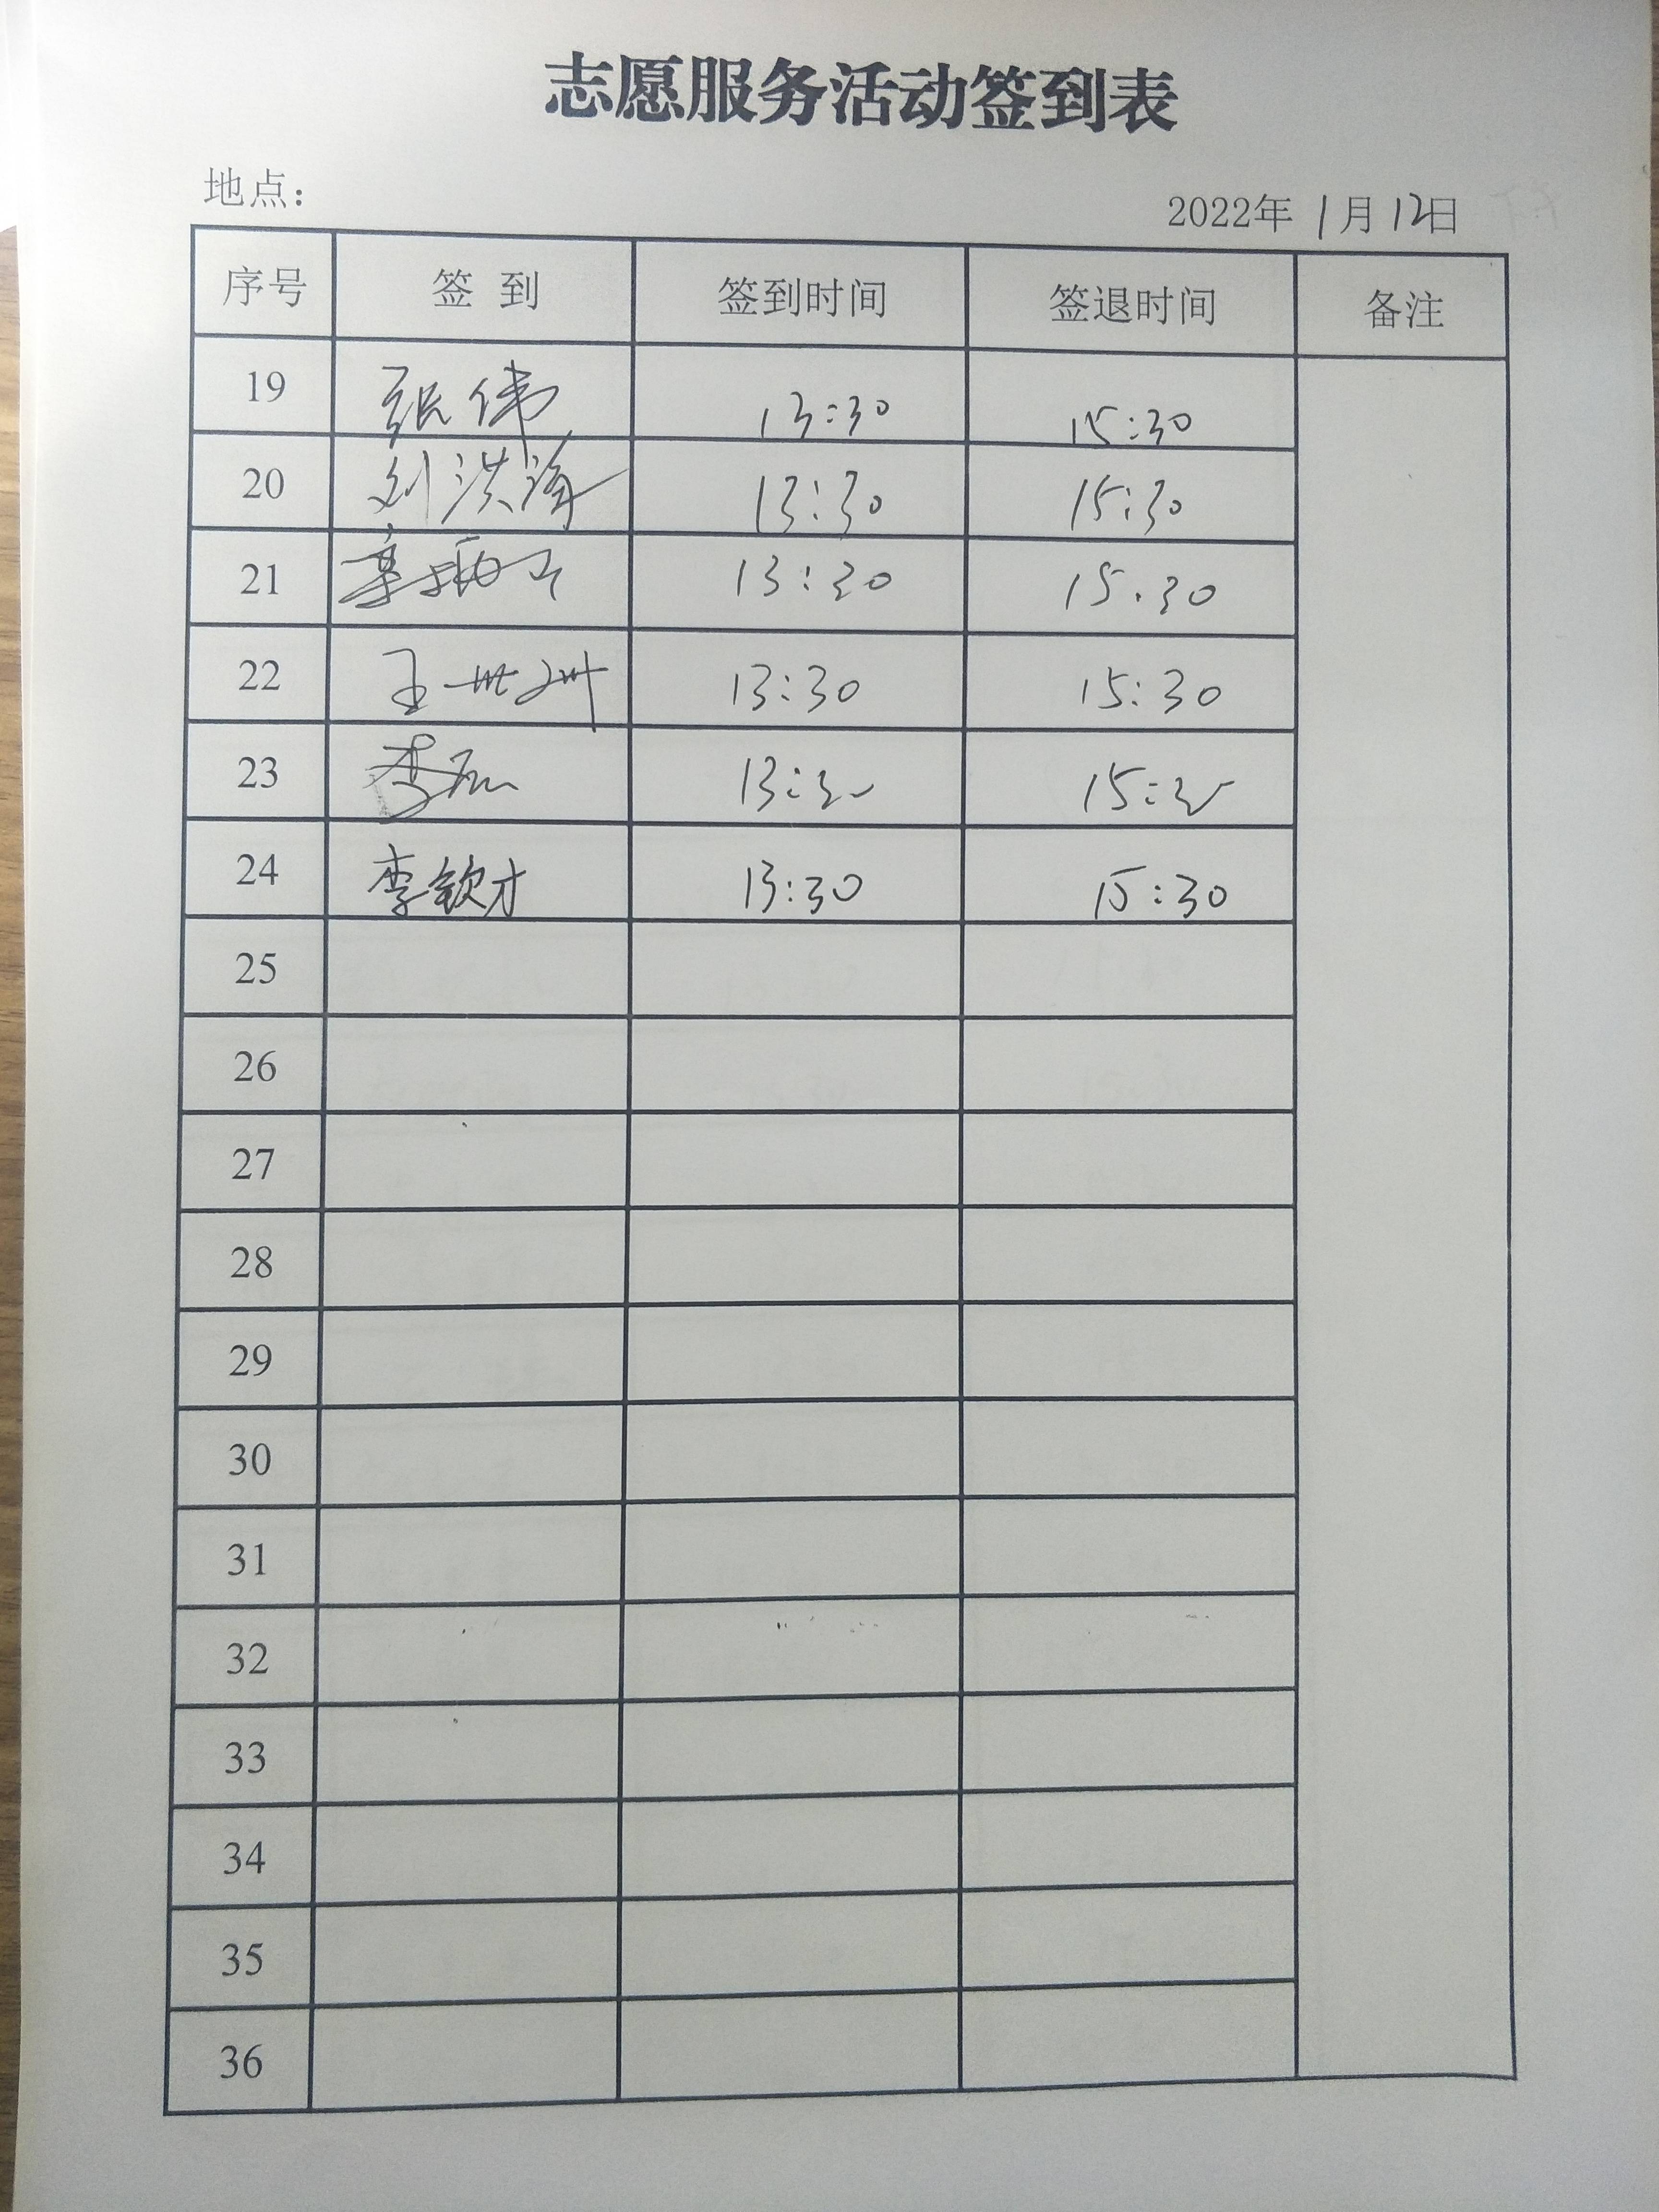 志愿服务活动签到表
地点：
2022年 1月 12日
序号 签 到 签到时间 签退时间 备注
19 张伟 13:30 15:30
20 刘洪 13:30 15:30
21 13:30 15.30
22 王世洲 13:30 15:30
23 李 13:30 15:30
24 李钦才 13:30 15:30
25
26
27
28
29
30
31
32
33
34
35
36